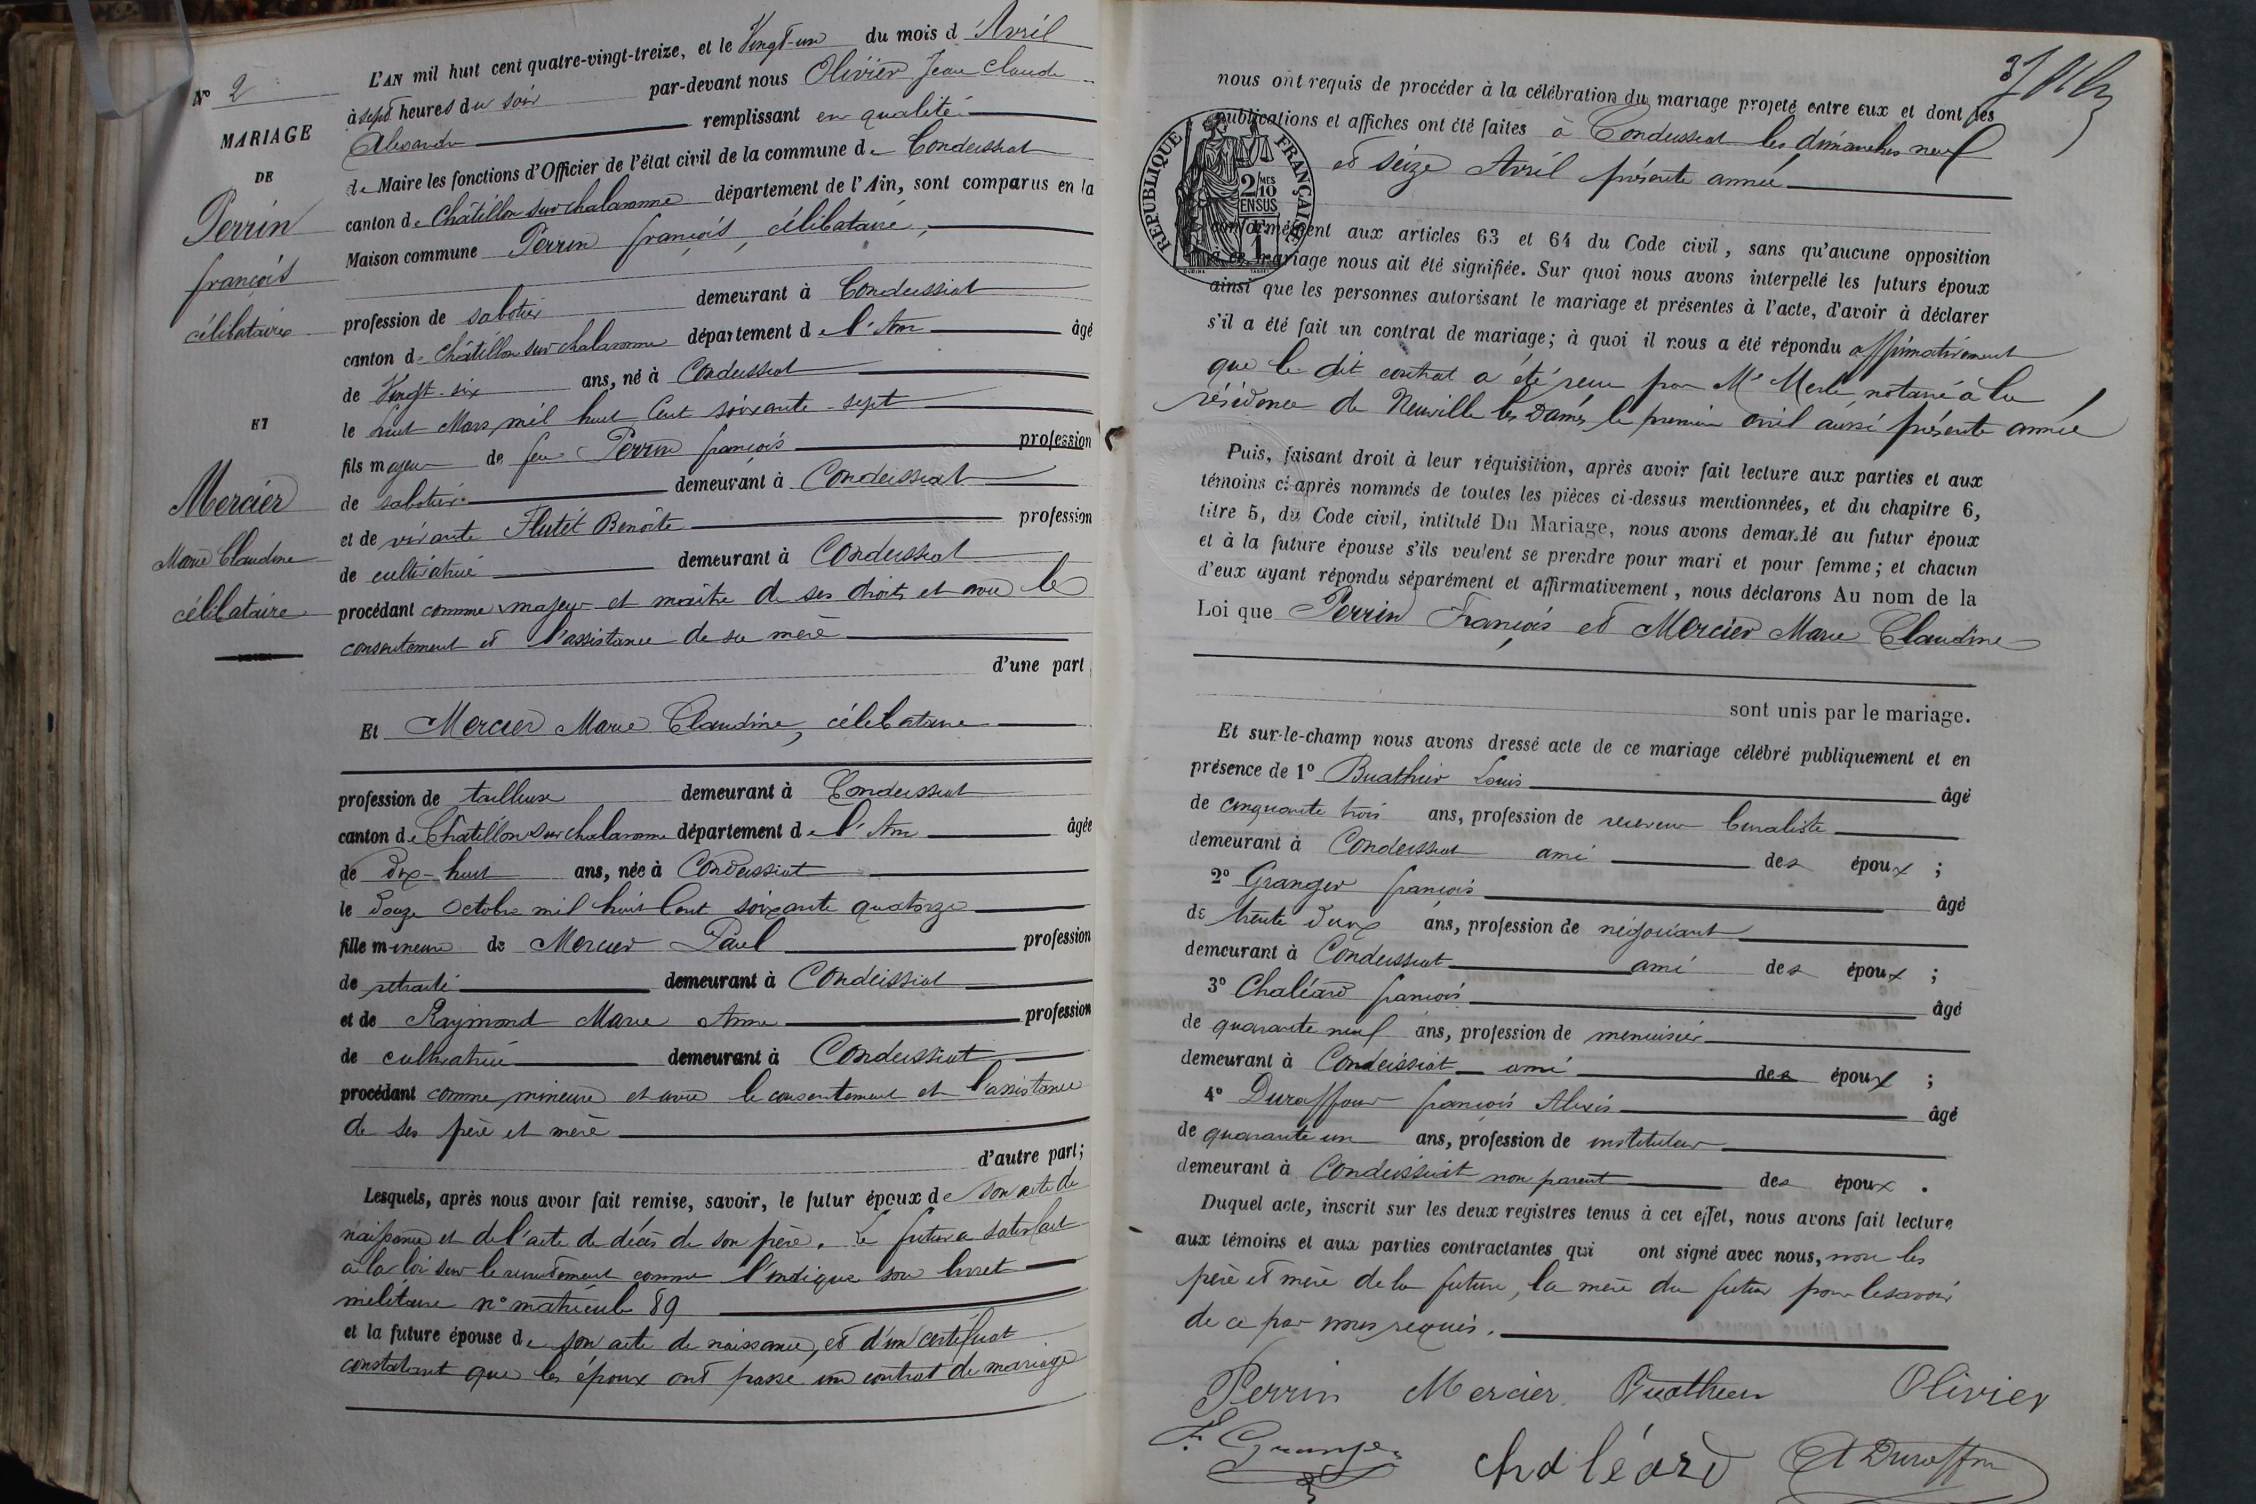 N° 2
MARIAGE
DE
Perrin
françois
célibataire
ET
Mercier
Marie Claudine
célibataire
L'AN mil huit cent quatre-vingt-treize, et le Vingt-un du mois d'Avril
à sept heures du soir par-devant nous Olivier Jean Claude
Alexandre remplissant en qualité
de Maire les fonctions d'Officier de l'état civil de la commune de Condeissiat
canton de Châtillon sur chalaronne département de l'Ain, sont comparus en la
Maison commune Perrin françois, célibataire,
profession de sabotier demeurant à Condeissiat
canton de Châtillon sur chalaronne département de l'Ain âgé
de Vingt-six ans, né à Condeissiat
le huit Mars mil huit Cent soixante-sept
fils majeur de feu Perrin françois profession
de sabotier demeurant à Condeissiat
et de vivante Flutet Benoîte profession
de cultivatrice demeurant à Condeissiat
procédant comme majeur et maître de ses droits et avec le
consentement et l'assistance de sa mère
d'une part
Et Mercier Marie Claudine, célibataire
profession de tailleuse demeurant à Condeissiat
canton de Châtillon sur chalaronne département de l'Ain âgée
de Dix-huit ans, née à Condeissiat
le Douze Octobre mil huit Cent soixante quatorze
fille mineure de Mercier Paul profession
de retraité demeurant à Condeissiat
et de Raymond Marie Anne profession
de cultivatrice demeurant à Condeissiat
procédant comme mineure et avec le consentement et l'assistance
de ses père et mère
d'autre part;
Lesquels, après nous avoir fait remise, savoir, le futur époux de son acte de
naissance et de l'acte de décès de son père. Le futur a satisfait
à la loi sur le recrutement comme l'indique son livret
militaire n° matricule 89
et la future épouse de son acte de naissance, et d'un certificat
constatant que les époux ont passé un contrat de mariage
37
nous ont requis de procéder à la célébration du mariage projeté entre eux et dont les
publications et affiches ont été faites à Condeissiat les dimanches neuf
et seize Avril présente année
RÉPUBLIQUE FRANÇAISE
2 MES 10 EN SUS
conformément aux articles 63 et 64 du Code civil, sans qu'aucune opposition
à ce mariage nous ait été signifiée. Sur quoi nous avons interpellé les futurs époux
ainsi que les personnes autorisant le mariage et présentes à l'acte, d'avoir à déclarer
s'il a été fait un contrat de mariage; à quoi il nous a été répondu affirmativement
que le dit contrat a été reçu par Me Merle notaire à la
résidence de Neuville les Dames le premier avril aussi présente année
Puis, faisant droit à leur réquisition, après avoir fait lecture aux parties et aux
témoins ci-après nommés de toutes les pièces ci-dessus mentionnées, et du chapitre 6,
titre 5, du Code civil, intitulé Du Mariage, nous avons demandé au futur époux
et à la future épouse s'ils veulent se prendre pour mari et pour femme; et chacun
d'eux ayant répondu séparément et affirmativement, nous déclarons Au nom de la
Loi que Perrin François et Mercier Marie Claudine
sont unis par le mariage.
Et sur-le-champ nous avons dressé acte de ce mariage célébré publiquement et en
présence de 1° Buathier Louis âgé
de cinquante trois ans, profession de receveur buraliste
demeurant à Condeissiat ami des époux;
2° Granger françois âgé
de trente deux ans, profession de négociant
demeurant à Condeissiat ami des époux;
3° Chaléard françois âgé
de quarante neuf ans, profession de menuisier
demeurant à Condeissiat ami des époux;
4° Duraffour françois Alexis âgé
de quarante un ans, profession de instituteur
demeurant à Condeissiat non parent des époux.
Duquel acte, inscrit sur les deux registres tenus à cet effet, nous avons fait lecture
aux témoins et aux parties contractantes qui ont signé avec nous, non les
père et mère de la future, la mère du futur pour le savoir
de ce par nous requis.
Perrin Mercier Buathier Olivier
F. Granger chaléard A Duraffour